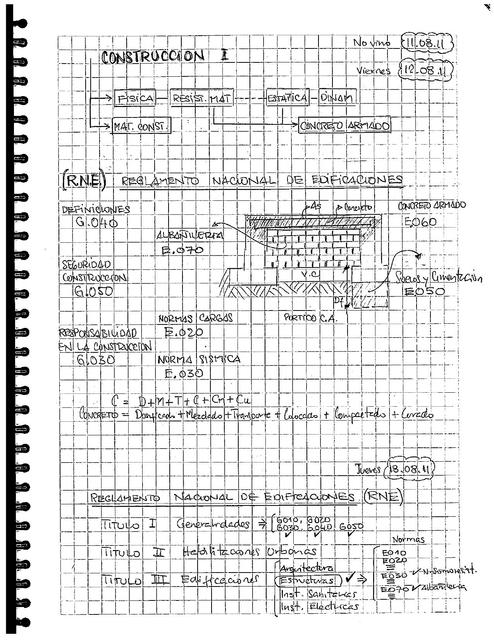 No vino 11.08.11
CONSTRUCCION I
Viernes 12.08.11
FISICA RESIST. MAT ESTATICA DINAM
MAT. CONST. CONCRETO ARMADO
(R.N.E.) REGLAMENTO NACIONAL DE EDIFICACIONES
DEFINICIONES
G.040
As Concreto
CONCRETO ARMADO
E.060
ALBAÑILERIA
E.070
SEGURIDAD
CONSTRUCCION
G.050
V.C.
Suelos y Cimentación
E.050
Df
PORTICO C.A.
NORMAS CARGAS
E.020
RESPONSABILIDAD
EN LA CONSTRUCCION
G.030
NORMA SISMICA
E.030
C = D+M+T+C+Cm+Cu
CONCRETO = Dosificado + Mezclado + Transporte + Colocado + Compactado + Curado
Jueves 18.08.11
REGLAMENTO NACIONAL DE EDIFICACIONES (RNE)
TITULO I Generalidades ⇒ G010, G020
G030, G040, G050
TITULO II Habilitaciones Urbanas
Normas
TITULO III Edificaciones
Arquitectura
Estructuras ✓ ⇒
Inst. Sanitarias
Inst. Electricas
E010
E020
E030 ✓
E070 Albañileria